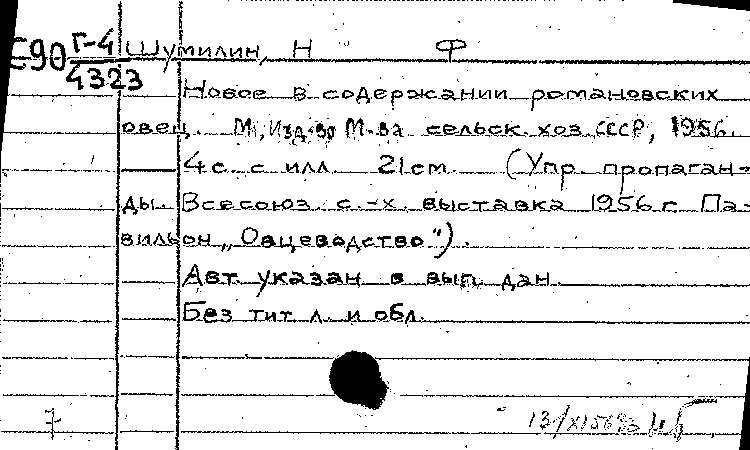 Е90 Г-4 Шумилин, Н Ф
4323
Новое в содержании романовских
овец. М., Изд-во М-ва сельск. хоз. СССР, 1956.
4 с. с илл. 21 см. (Упр. пропаган-
ды. Всесоюз. с.-х. выставка 1956 г. Па-
вильон „Овцеводство").
Авт. указан в вып. дан.
Без тит. л. и обл.
7